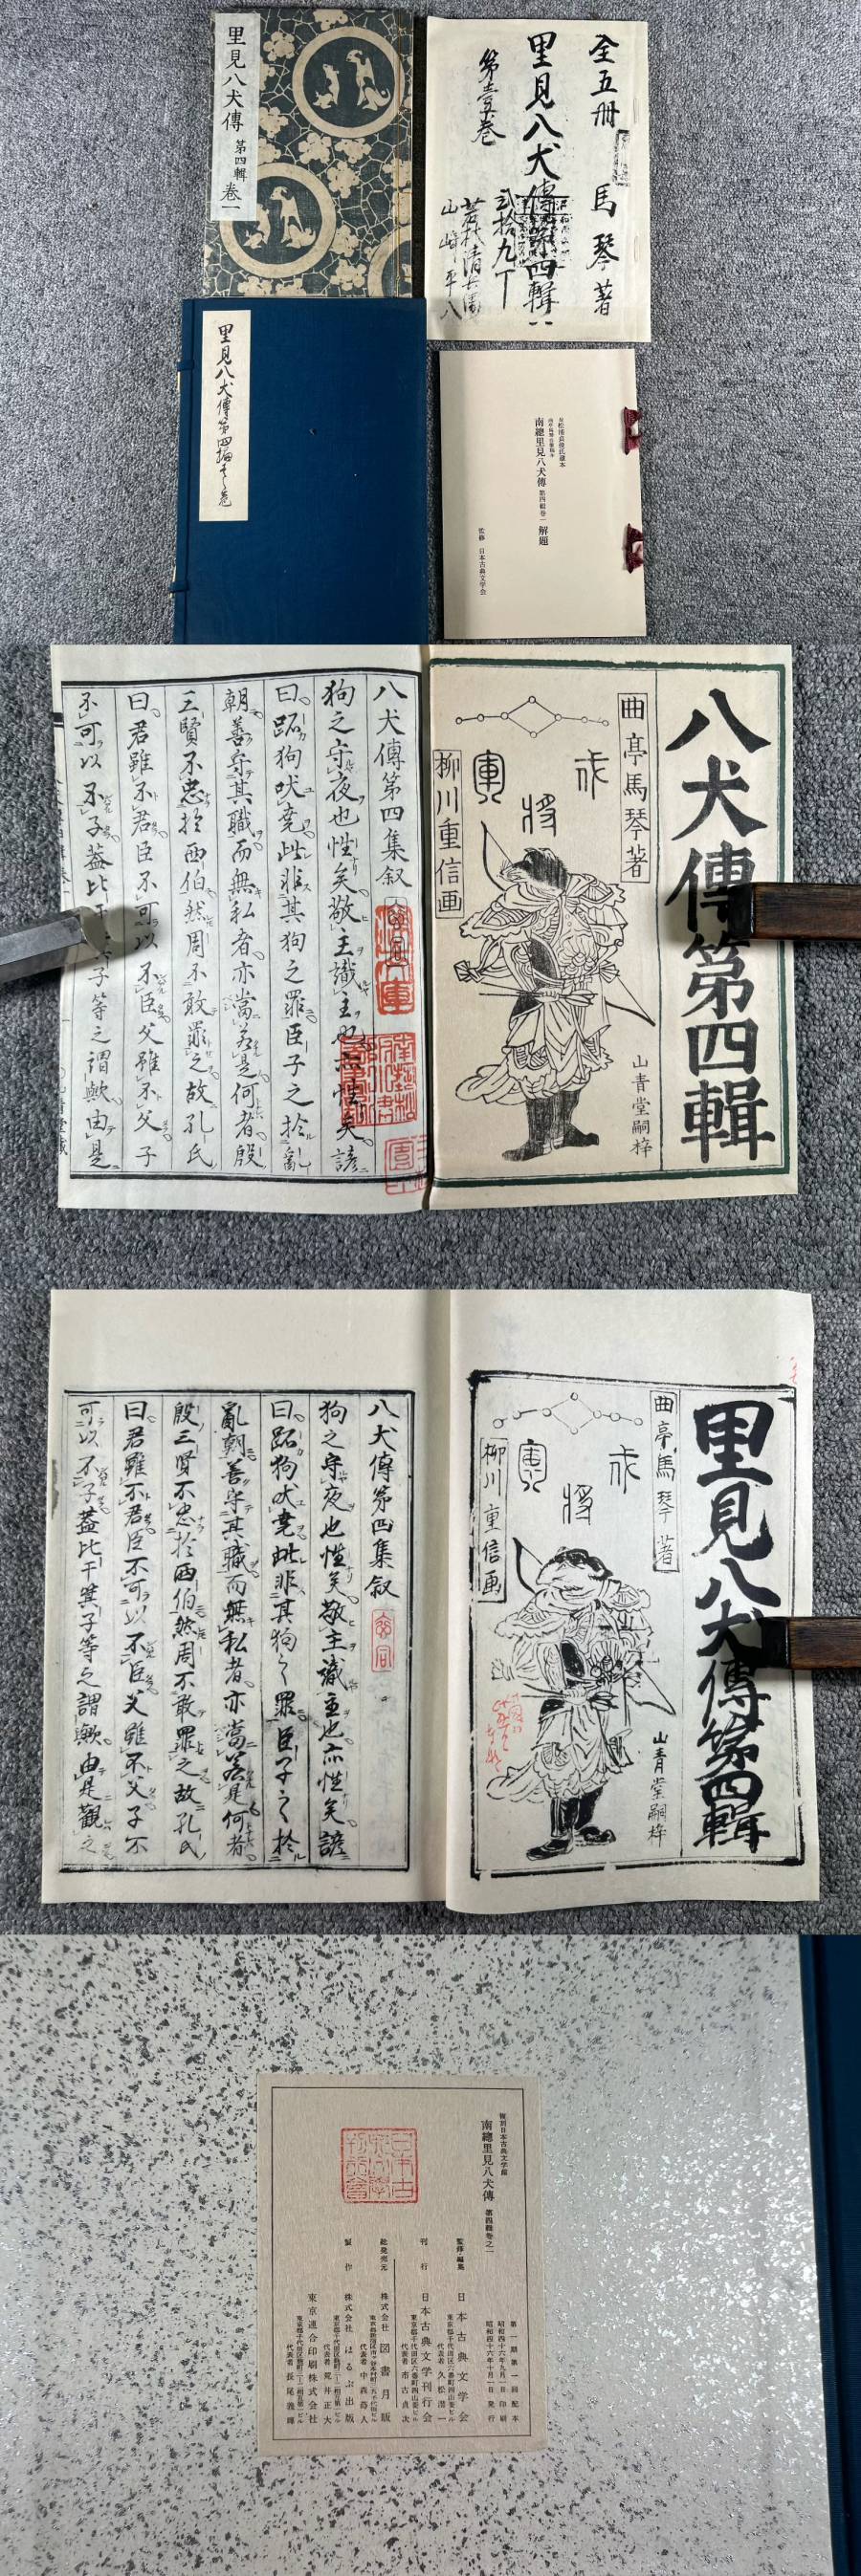 里見八犬傳 第四輯 卷一
全五冊 馬琴著
里見八犬傳第四輯
第壹卷
弐拾九丁
山崎平八
里見八犬傳第四輯
南總里見八犬傳 第四輯卷一 解題
監修 日本古典文学会
八犬傳第四輯
曲亭馬琴著
戌
将
軍
柳川重信画
山青堂嗣梓
八犬傳第四集叙
狗之守夜也性矣敬主識主也亦性矣諺
曰跖狗吠堯此非其狗之罪臣子之於亂
朝善守其職而無私者亦當若是何者殷
三賢不忠於西伯然周不敢罪之故孔氏
曰君雖不君臣不可以不臣父雖不父子
不可以不子蓋比干箕子等之謂歟由是
里見八犬傳第四輯
曲亭馬琴著
戌
将
軍
柳川重信画
山青堂嗣梓
八犬傳第四集叙
狗之守夜也性矣敬主識主也亦性矣諺
曰跖狗吠堯此非其狗之罪臣子之於
亂朝善守其職而無私者亦當若是何者
殷三賢不忠於西伯然周不敢罪之故孔氏
曰君雖不君臣不可以不臣父雖不父子不
可以不子蓋比干箕子等之謂歟由是觀之
複刻日本古典文学館
南總里見八犬傳 第四輯卷之一
第一期第一回配本
昭和四十六年九月一日 印刷
昭和四十六年十月一日 発行
監修・編集 日本古典文学会
代表者 久松潜一
刊行 日本古典文学刊行会
代表者 市古貞次
総発売元 株式会社 図書月販
代表者 中森蒔人
製作 株式会社 ほるぷ出版
代表者 荒井正大
東京連合印刷株式会社
代表者 長尾義輝